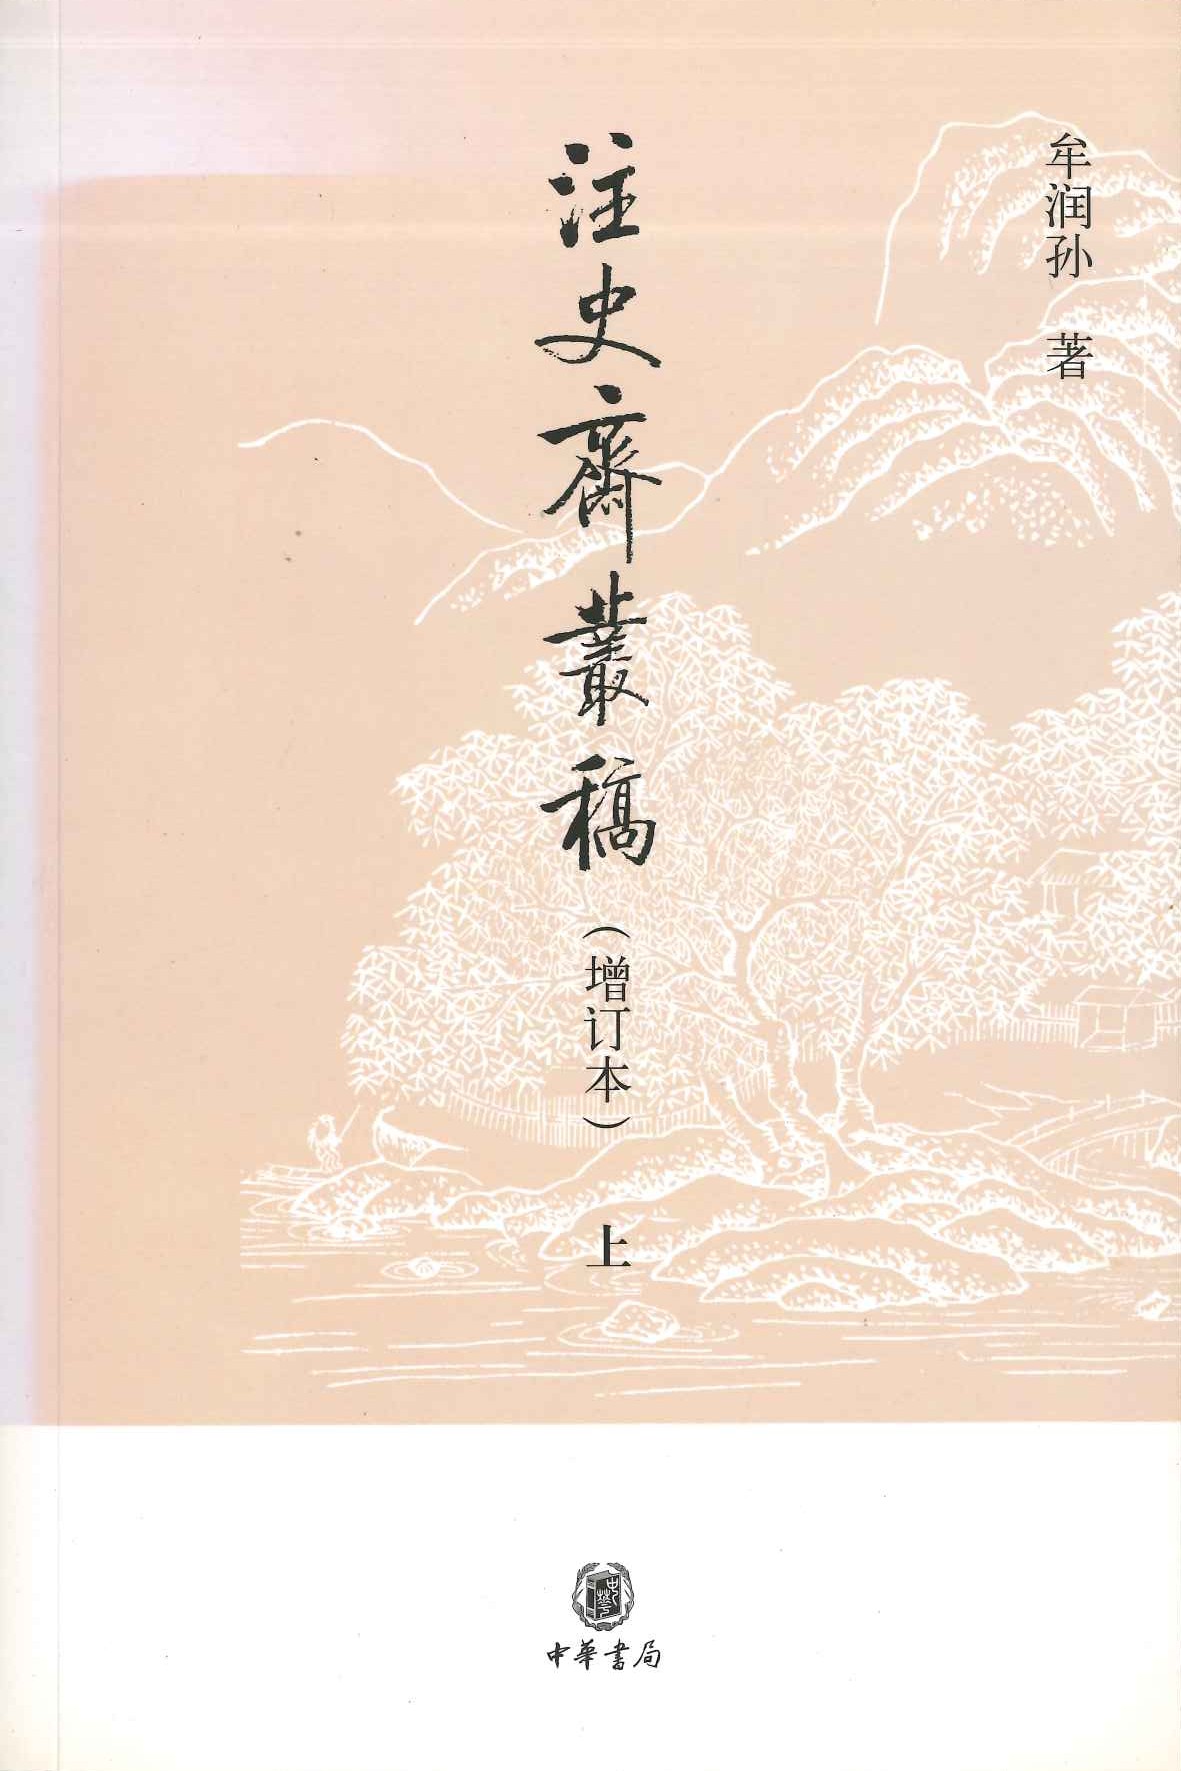 牟润孙 著
注史齋叢稿
（增订本）
上
中華書局